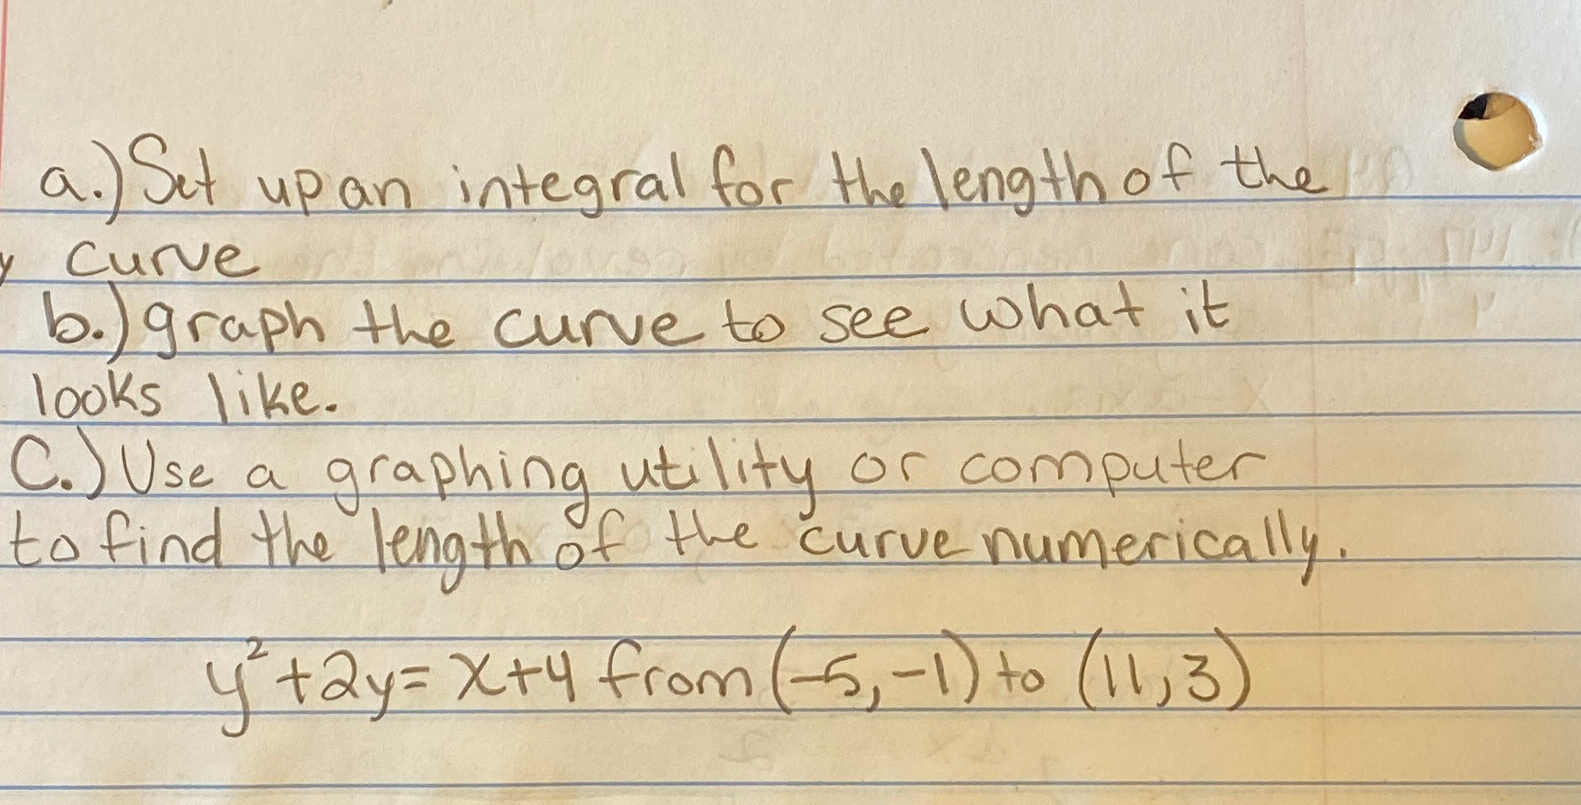 a.) Set up an integral for the length of the
y curve
b.) graph the curve to see what it
looks like.
C.) Use a graphing utility or computer
to find the length of the curve numerically.
y²+2y=x+4 from (-5,-1) to (11,3)